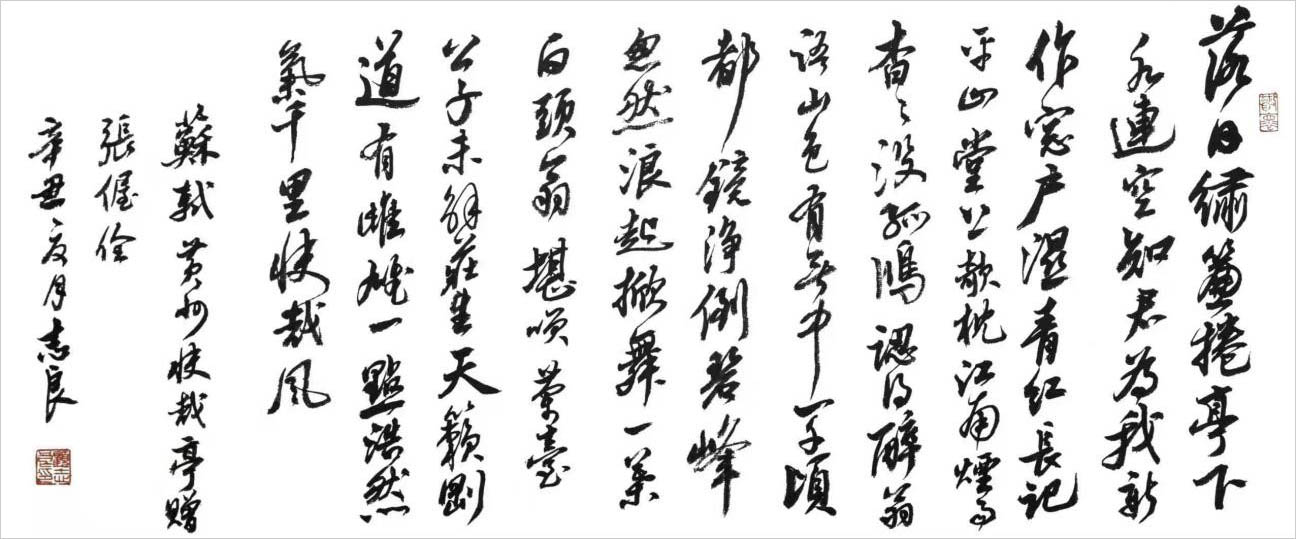 落日繡簾捲亭下
水連空知君為我新
作窓户濕青紅長記
平山堂上欹枕江南煙雨
杳々沒孤鴻認得醉翁
語山色有無中一千頃
都鏡淨倒碧峰
忽然浪起掀舞一葉
白頭翁堪唉蘭臺
公子未解莊生天籟剛
道有雌雄一點浩然
氣千里快哉風
蘇軾黄州快哉亭贈
張偓佺
辛丑夏月志良